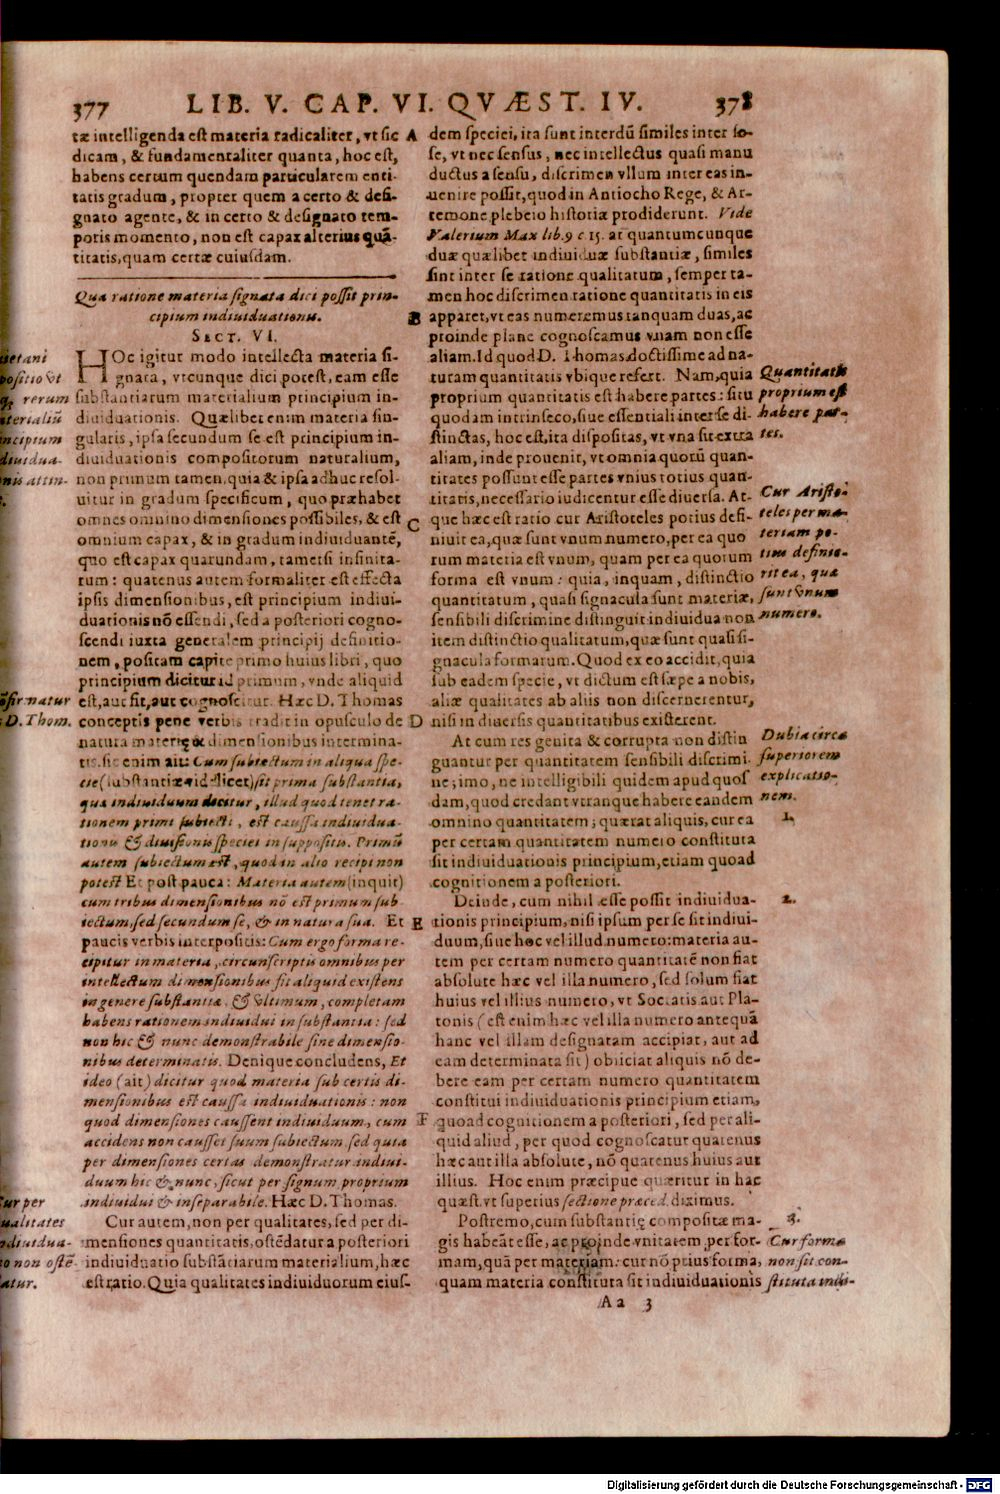 377 LIB. V. CAP. VI. QVÆST. IV. 378
tæ intelligenda est materia radicaliter, vt sic
dicam, & fundamentaliter quanta, hoc est,
habens certum quendam particularem enti-
tatis gradum, propter quem a certo & desi-
gnato agente, & in certo & designato tem-
poris momento, non est capax alterius quã-
titatis, quam certæ cuiusdam.
Qua ratione materia signata dici possit prin-
cipium indiuiduationis.
SECT. VI.
HOc igitur modo intellecta materia si-
gnata, vtcunque dici potest, eam esse
substantiarum materialium principium in-
diuiduationis. Quælibet enim materia sin-
gularis, ipsa secundum se est principium in-
diuiduationis compositorum naturalium,
non primum tamen, quia & ipsa adhuc resol-
uitur in gradum specificum, quo præhabet
omnes omnino dimensiones possibiles, & est
omnium capax, & in gradum indiuiduantẽ,
quo est capax quarundam, tametsi infinita-
rum: quatenus autem formaliter est effecta
ipsis dimensionibus, est principium indiui-
duationis nõ essendi, sed a posteriori cogno-
scendi iuxta generalem principij definitio-
nem, positam capite primo huius libri, quo
principium dicitur id primum, vnde aliquid
est, aut fit, aut cognoscitur. Hæc D. Thomas
conceptis pene verbis tradit in opusculo de
natura materię & dimensionibus intermina-
tis. sic enim ait: Cum subiectum in aliqua spe-
cie (substantiæ videlicet) sit prima substantia,
qua indiuiduum dicitur, illud quod tenet ra-
tionem primi subiecti, est caussa indiuidua-
tionis & diuisionis speciei in suppositis. Primũ
autem subiectum est, quod in alio recipi non
potest Et post pauca: Materia autem (inquit)
cum tribus dimensionibus nõ est primum sub-
iectum, sed secundum se, & in natura sua. Et
paucis verbis interpositis: Cum ergo forma re-
cipitur in materia, circunscriptis omnibus per
intellectum dimensionibus fit aliquid existens
in genere substantiæ, & vltimum, completam
habens rationem indiuidui in substantia: sed
non hic & nunc demonstrabile sine dimensio-
nibus determinatis. Denique concludens, Et
ideo (ait) dicitur quod materia sub certis di-
mensionibus est caussa indiuiduationis: non
quod dimensiones caussent indiuiduum, cum
accidens non causset suum subiectum, sed quia
per dimensiones certas demonstratur indiui-
duum hic & nunc, sicut per signum proprium
indiuidui & inseparabile. Hæc D. Thomas.
Cur autem, non per qualitates, sed per di-
mensiones quantitatis, ostẽdatur a posteriori
indiuiduatio substãtiarum materialium, hæc
est ratio. Quia qualitates indiuiduorum eius-
ietani
positio vt
q; rerum
aterialiũ
incipium
diuidua-
nis attin-
t.
õfirmatur
D. Thom.
Cur per
ualitates
ndiuidua-
o non ostẽ-
atur.
A
B
C
D
E
F
dem speciei, ita sunt interdũ similes inter se-
se, vt nec sensus, nec intellectus quasi manu
ductus a sensu, discrimen vllum inter eas in-
uenire possit, quod in Antiocho Rege, & Ar-
temone plebeio historiæ prodiderunt. Vide
Valerium Max lib. 9 c. 15. at quantumcunque
duæ quælibet indiuiduæ substantiæ, similes
sint inter se ratione qualitatum, semper ta-
men hoc discrimen ratione quantitatis in eis
apparet, vt eas numeremus tanquam duas, ac
proinde plane cognoscamus vnam non esse
aliam. Id quod D. Thomas doctissime ad na-
turam quantitatis vbique refert. Nam, quia
proprium quantitatis est habere partes: situ
quodam intrinseco, siue essentiali inter se di-
stinctas, hoc est, ita dispositas, vt vna sit extra
aliam, inde prouenit, vt omnia quorũ quan-
titates possunt esse partes vnius totius quan-
titatis, necessario iudicentur esse diuersa. At-
que hæc est ratio cur Aristoteles potius defi-
niuit ea, quæ sunt vnum numero, per ea quo
rum materia est vnum, quam per ea quorum
forma est vnum: quia, inquam, distinctio
quantitatum, quasi signacula sunt materiæ,
sensibili discrimine distinguit indiuidua non
item distinctio qualitatum, quæ sunt quasi si-
gnacula formarum. Quod ex eo accidit, quia
sub eadem specie, vt dictum est sæpe a nobis,
aliæ qualitates ab aliis non discernerentur,
nisi in diuersis quantitatibus existerent.
At cum res genita & corrupta non distin
guantur per quantitatem sensibili discrimi-
ne; imo, ne intelligibili quidem apud quos
dam, quod credant vtranque habere eandem
omnino quantitatem; quærat aliquis, cur ea
per certam quantitatem numero constituta
sit indiuiduationis principium, etiam quoad
cognitionem a posteriori.
Deinde, cum nihil esse possit indiuidua-
tionis principium, nisi ipsum per se sit indiui-
duum, siue hoc vel illud numero: materia au-
tem per certam numero quantitatẽ non fiat
absolute hæc vel illa numero, sed solum fiat
huius vel illius numero, vt Socratis aut Pla-
tonis (est enim hæc vel illa numero antequã
hanc vel illam designatam accipiat, aut ad
eam determinata sit) obiiciat aliquis nõ de-
bere eam per certam numero quantitatem
constitui indiuiduationis principium etiam,
quoad cognitionem a posteriori, sed per ali-
quid aliud, per quod cognoscatur quatenus
hæc aut illa absolute, nõ quatenus huius aut
illius. Hoc enim præcipue quæritur in hac
quæst. vt superius sectione præced. diximus.
Postremo, cum substantię compositæ ma-
gis habeãt esse, ac proinde vnitatem per for-
mam, quã per materiam: cur nõ potius forma,
quam materia constituta sit indiuiduationis
Quantitatis
proprium est
habere par-
tes.
Cur Aristo-
teles per ma-
teriam po-
tius definie-
rit ea, quæ
sunt vnum
numero.
Dubia circa
superiorem
explicatio-
nem.
1.
2.
3.
Cur forma
non sit con-
stituta indi-
Aa 3
Digitalisierung gefördert durch die Deutsche Forschungsgemeinschaft - DFG